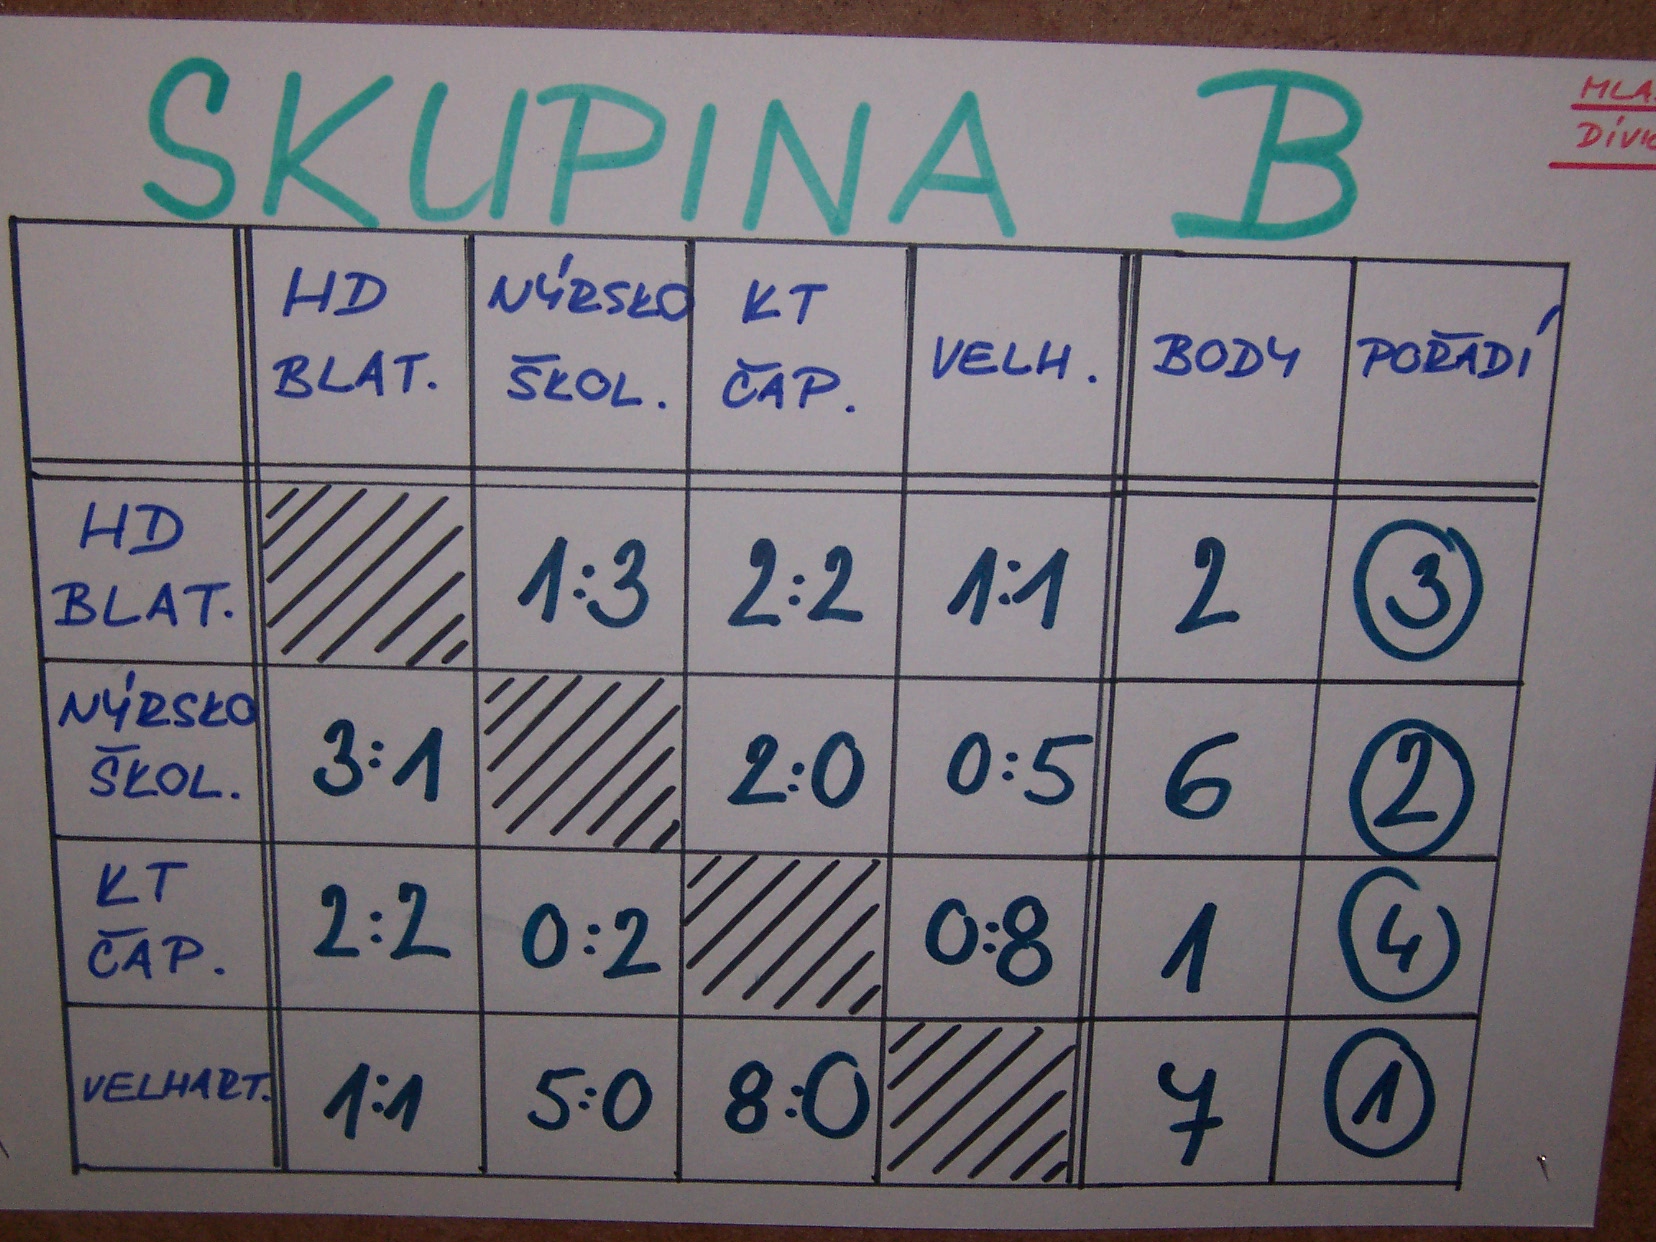 SKUPINA B
HD BLAT. NÝRSKO ŠKOL. KT ČAP. VELH. BODY POŘADÍ
HD BLAT. 1:3 2:2 1:1 2 3
NÝRSKO ŠKOL. 3:1 2:0 0:5 6 2
KT ČAP. 2:2 0:2 0:8 1 4
VELHART. 1:1 5:0 8:0 7 1